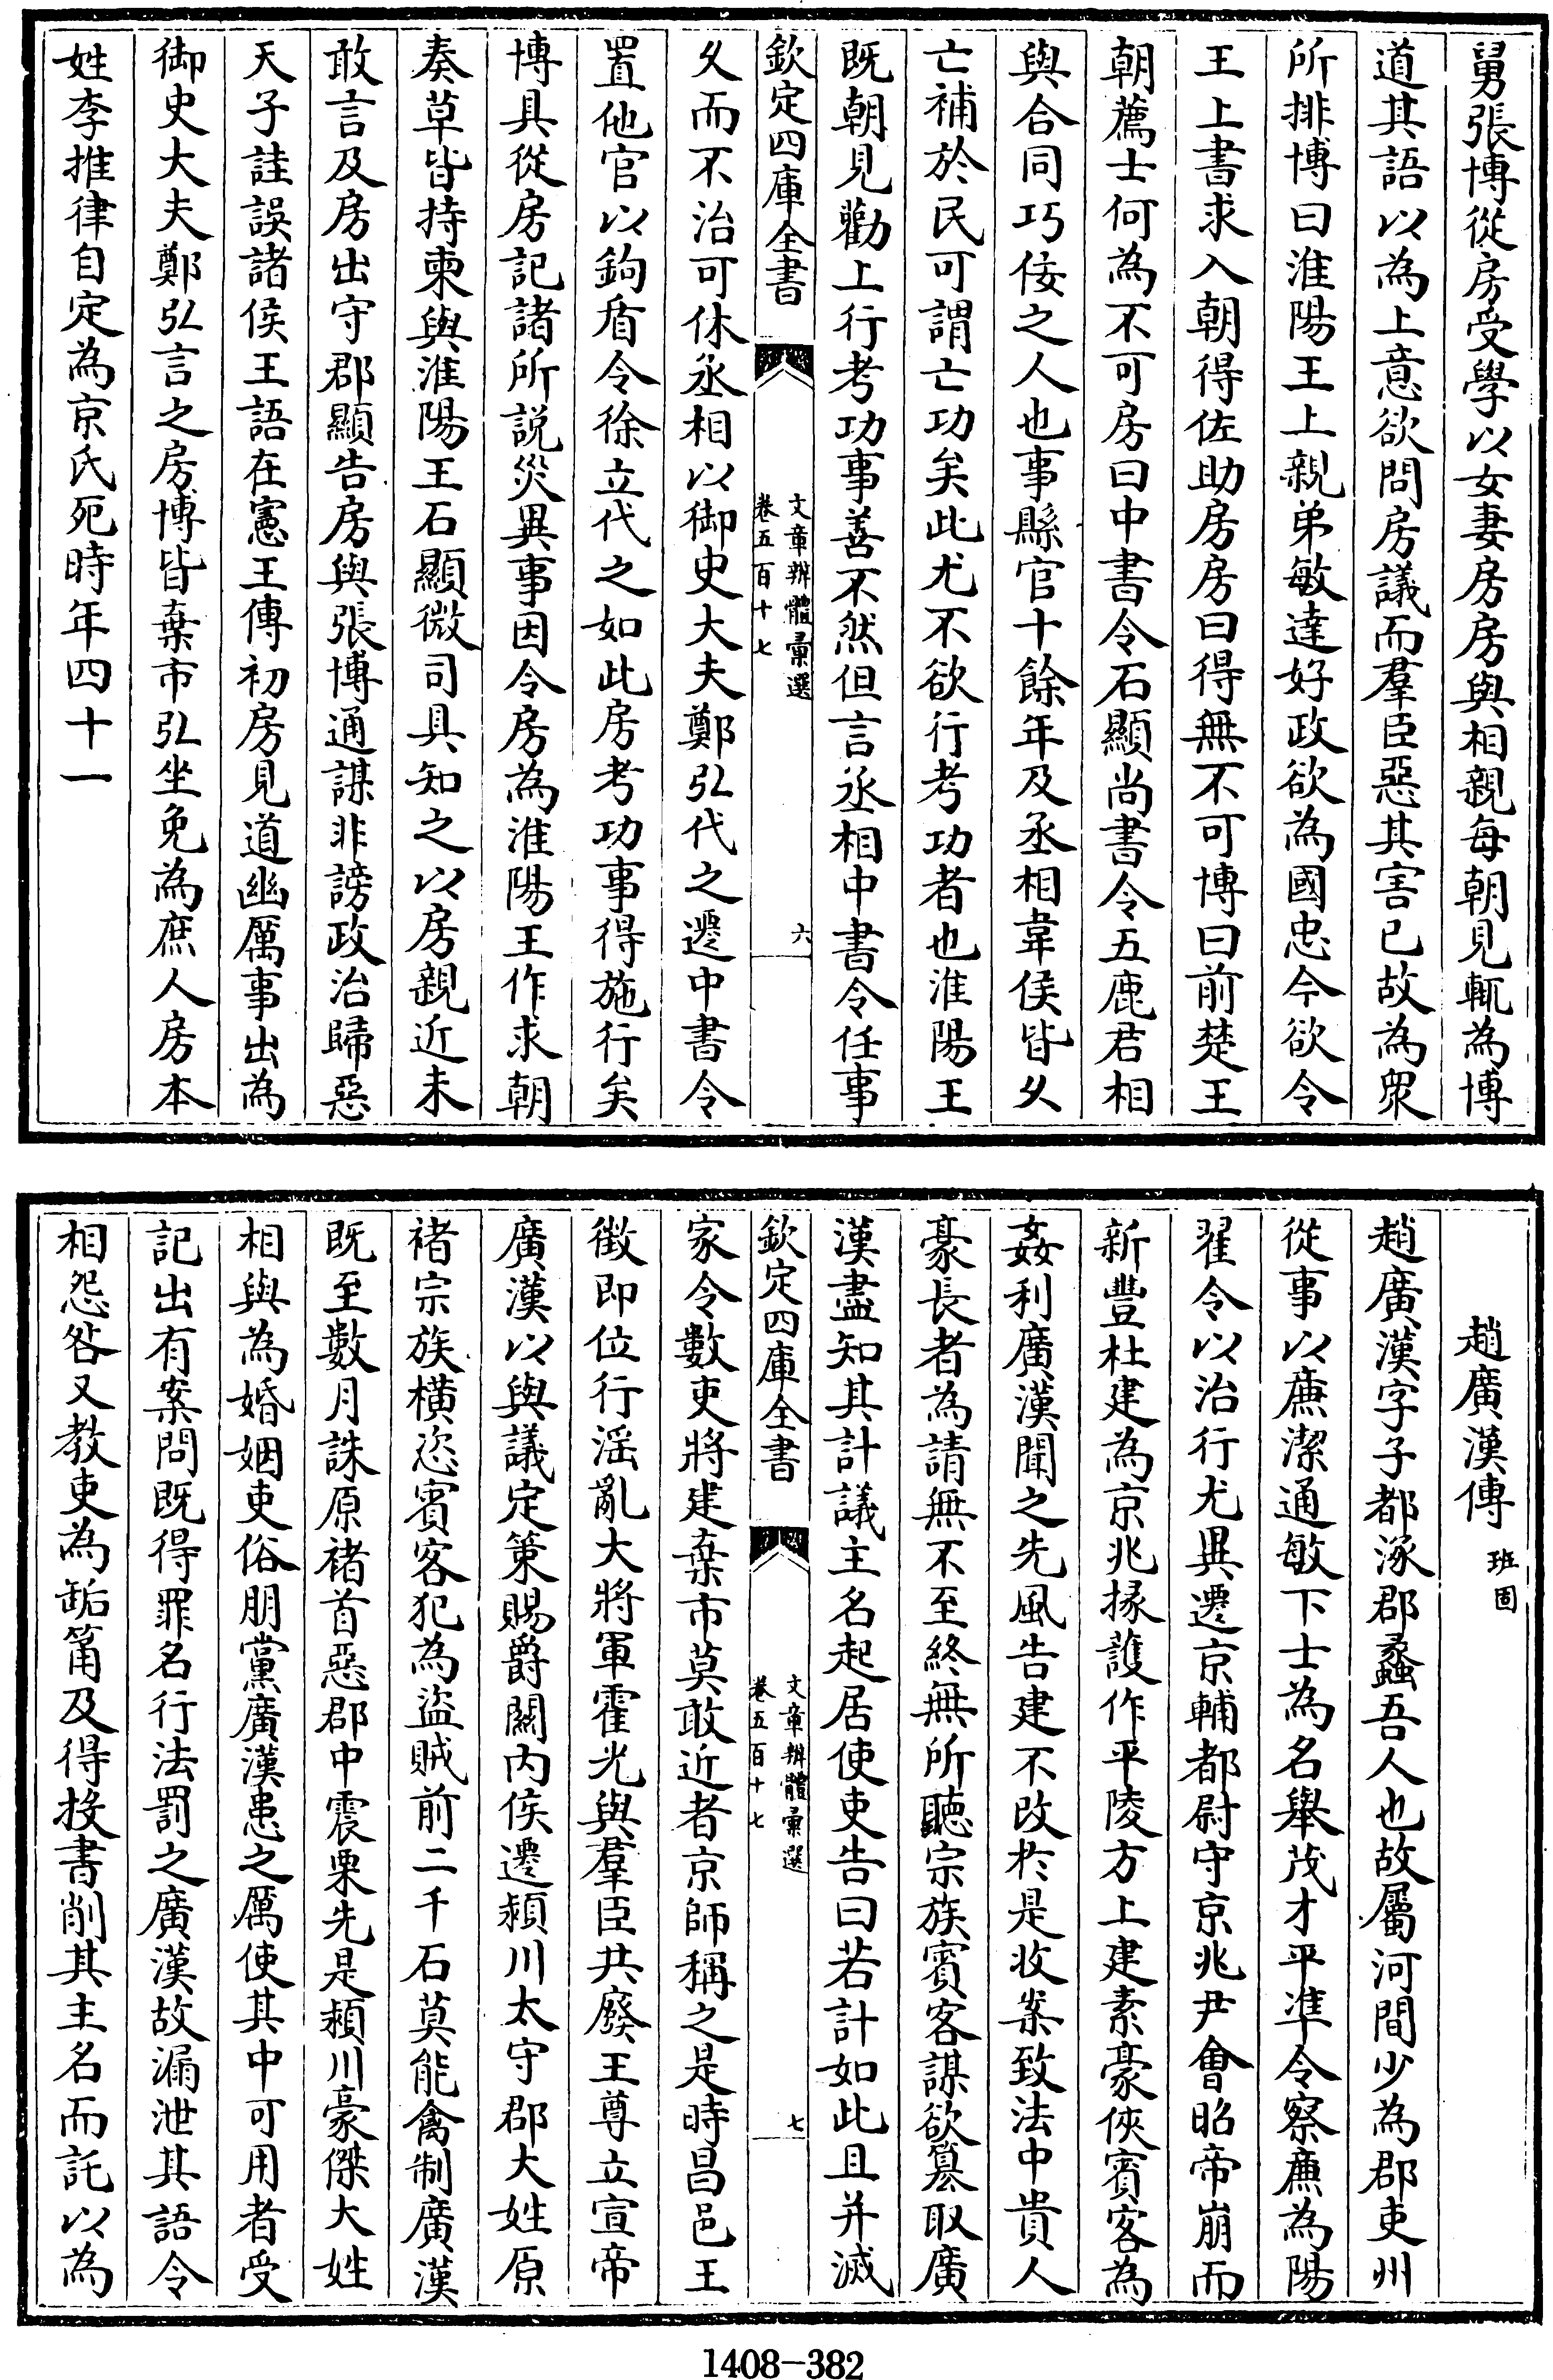 舅張博從房受學以女妻房房與相親每朝見輒為博
道其語以為上意欲問房議而羣臣惡其害己故為衆
所排博曰淮陽王上親弟敏達好政欲為國忠今欲令
王上書求入朝得佐助房房曰得無不可博曰前楚王
朝薦士何為不可房曰中書令石顯尚書令五鹿君相
與合同巧佞之人也事縣官十餘年及丞相韋侯皆乆
亡補於民可謂亡功矣此尤不欲行考功者也淮陽王
既朝見勸上行考功事善不然但言丞相中書令任事
欽定四庫全書
文章辨體彙選
卷五百十七
六
乆而不治可休丞相以御史大夫鄭弘代之遷中書令
置他官以鉤盾令徐立代之如此房考功事得施行矣
博具從房記諸所説災異事因令房為淮陽王作求朝
奏草皆持柬與淮陽王石顯微司具知之以房親近未
敢言及房出守郡顯告房與張博通謀非謗政治歸惡
天子詿誤諸侯王語在憲王傳初房見道幽厲事出為
御史大夫鄭弘言之房博皆棄市弘坐免為庶人房本
姓李推律自定為京氏死時年四十一
趙廣漢傳 班固
趙廣漢字子都涿郡蠡吾人也故屬河間少為郡吏州
從事以亷潔通敏下士為名舉茂才平凖令察亷為陽
翟令以治行尤異遷京輔都尉守京兆尹會昭帝崩而
新豐杜建為京兆掾護作平陵方上建素豪俠賓客為
姦利廣漢聞之先風告建不改於是收案致法中貴人
豪長者為請無不至終無所聽宗族賓客謀欲簒取廣
漢盡知其計議主名起居使吏告曰若計如此且并滅
欽定四庫全書
文章辨體彙選
卷五百十七
七
家令數吏將建棄市莫敢近者京師稱之是時昌邑王
徵即位行淫亂大將軍霍光與羣臣共廢王尊立宣帝
廣漢以與議定策賜爵關內侯遷潁川太守郡大姓原
褚宗族橫恣賓客犯為盜賊前二千石莫能禽制廣漢
既至數月誅原褚首惡郡中震栗先是潁川豪傑大姓
相與為婚姻吏俗朋黨廣漢患之厲使其中可用者受
記出有案問既得罪名行法罰之廣漢故漏泄其語令
相怨咎又教吏為缿筩及得投書削其主名而託以為
1408-382